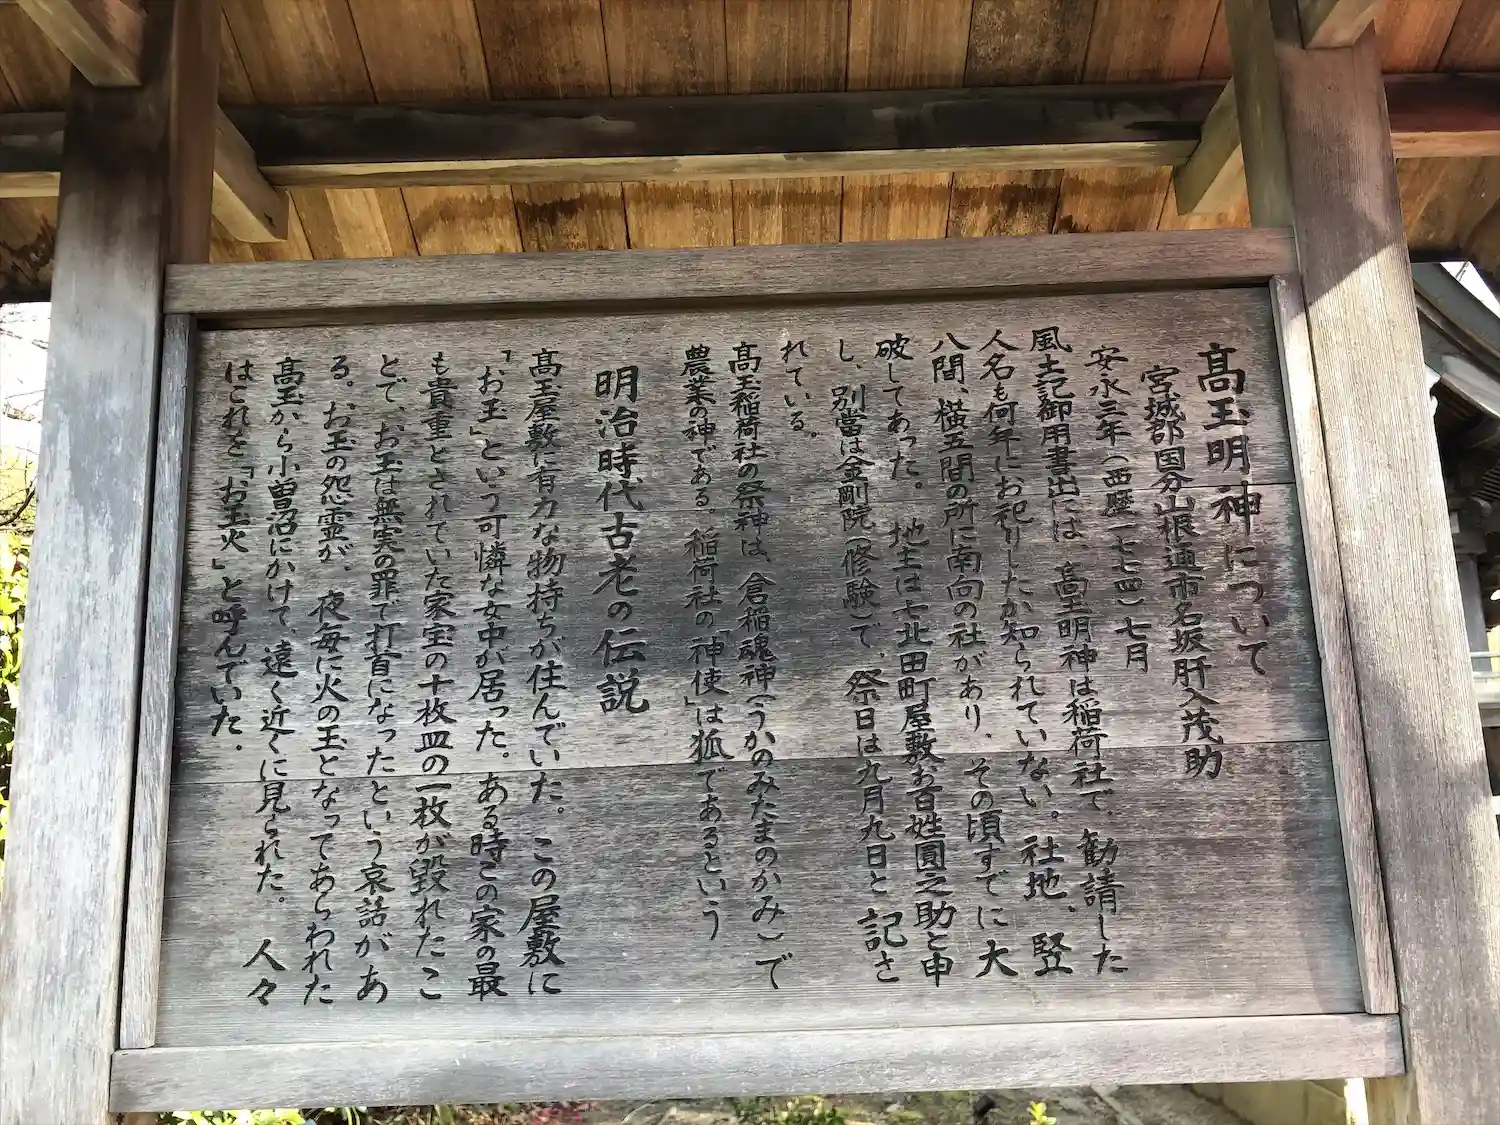 髙玉明神について
宮城郡国分山根通市名坂肝入茂助
安永三年(西歴一七七四)七月
風土記御用書出には 髙玉明神は稲荷社で、勧請した
人名も何年にお祀りしたか知られていない。社地、竪
八間、横五間の所に南向の社があり、その頃すでに大
破してあった。 地主は七北田町屋敷お百姓圓之助と申
し、別當は金剛院(修験)で、祭日は九月九日と記さ
れている。
髙玉稲荷社の祭神は、倉稲魂神(うかのみたまのかみ)で
農業の神である。稲荷社の「神使」は狐であるという
明治時代古老の伝説
髙玉屋敷に有力な物持ちが住んでいた。この屋敷に
「お玉」という可憐な女中が居った。ある時この家の最
も貴重とされていた家宝の十枚皿の一枚が毀れたこ
とで、お玉は無実の罪で打首になったという哀話があ
る。お玉の怨霊が、夜毎に火の玉となってあらわれた
髙玉から小曽沼にかけて、遠く近くに見られた。 人々
はこれを「お玉火」と呼んでいた.